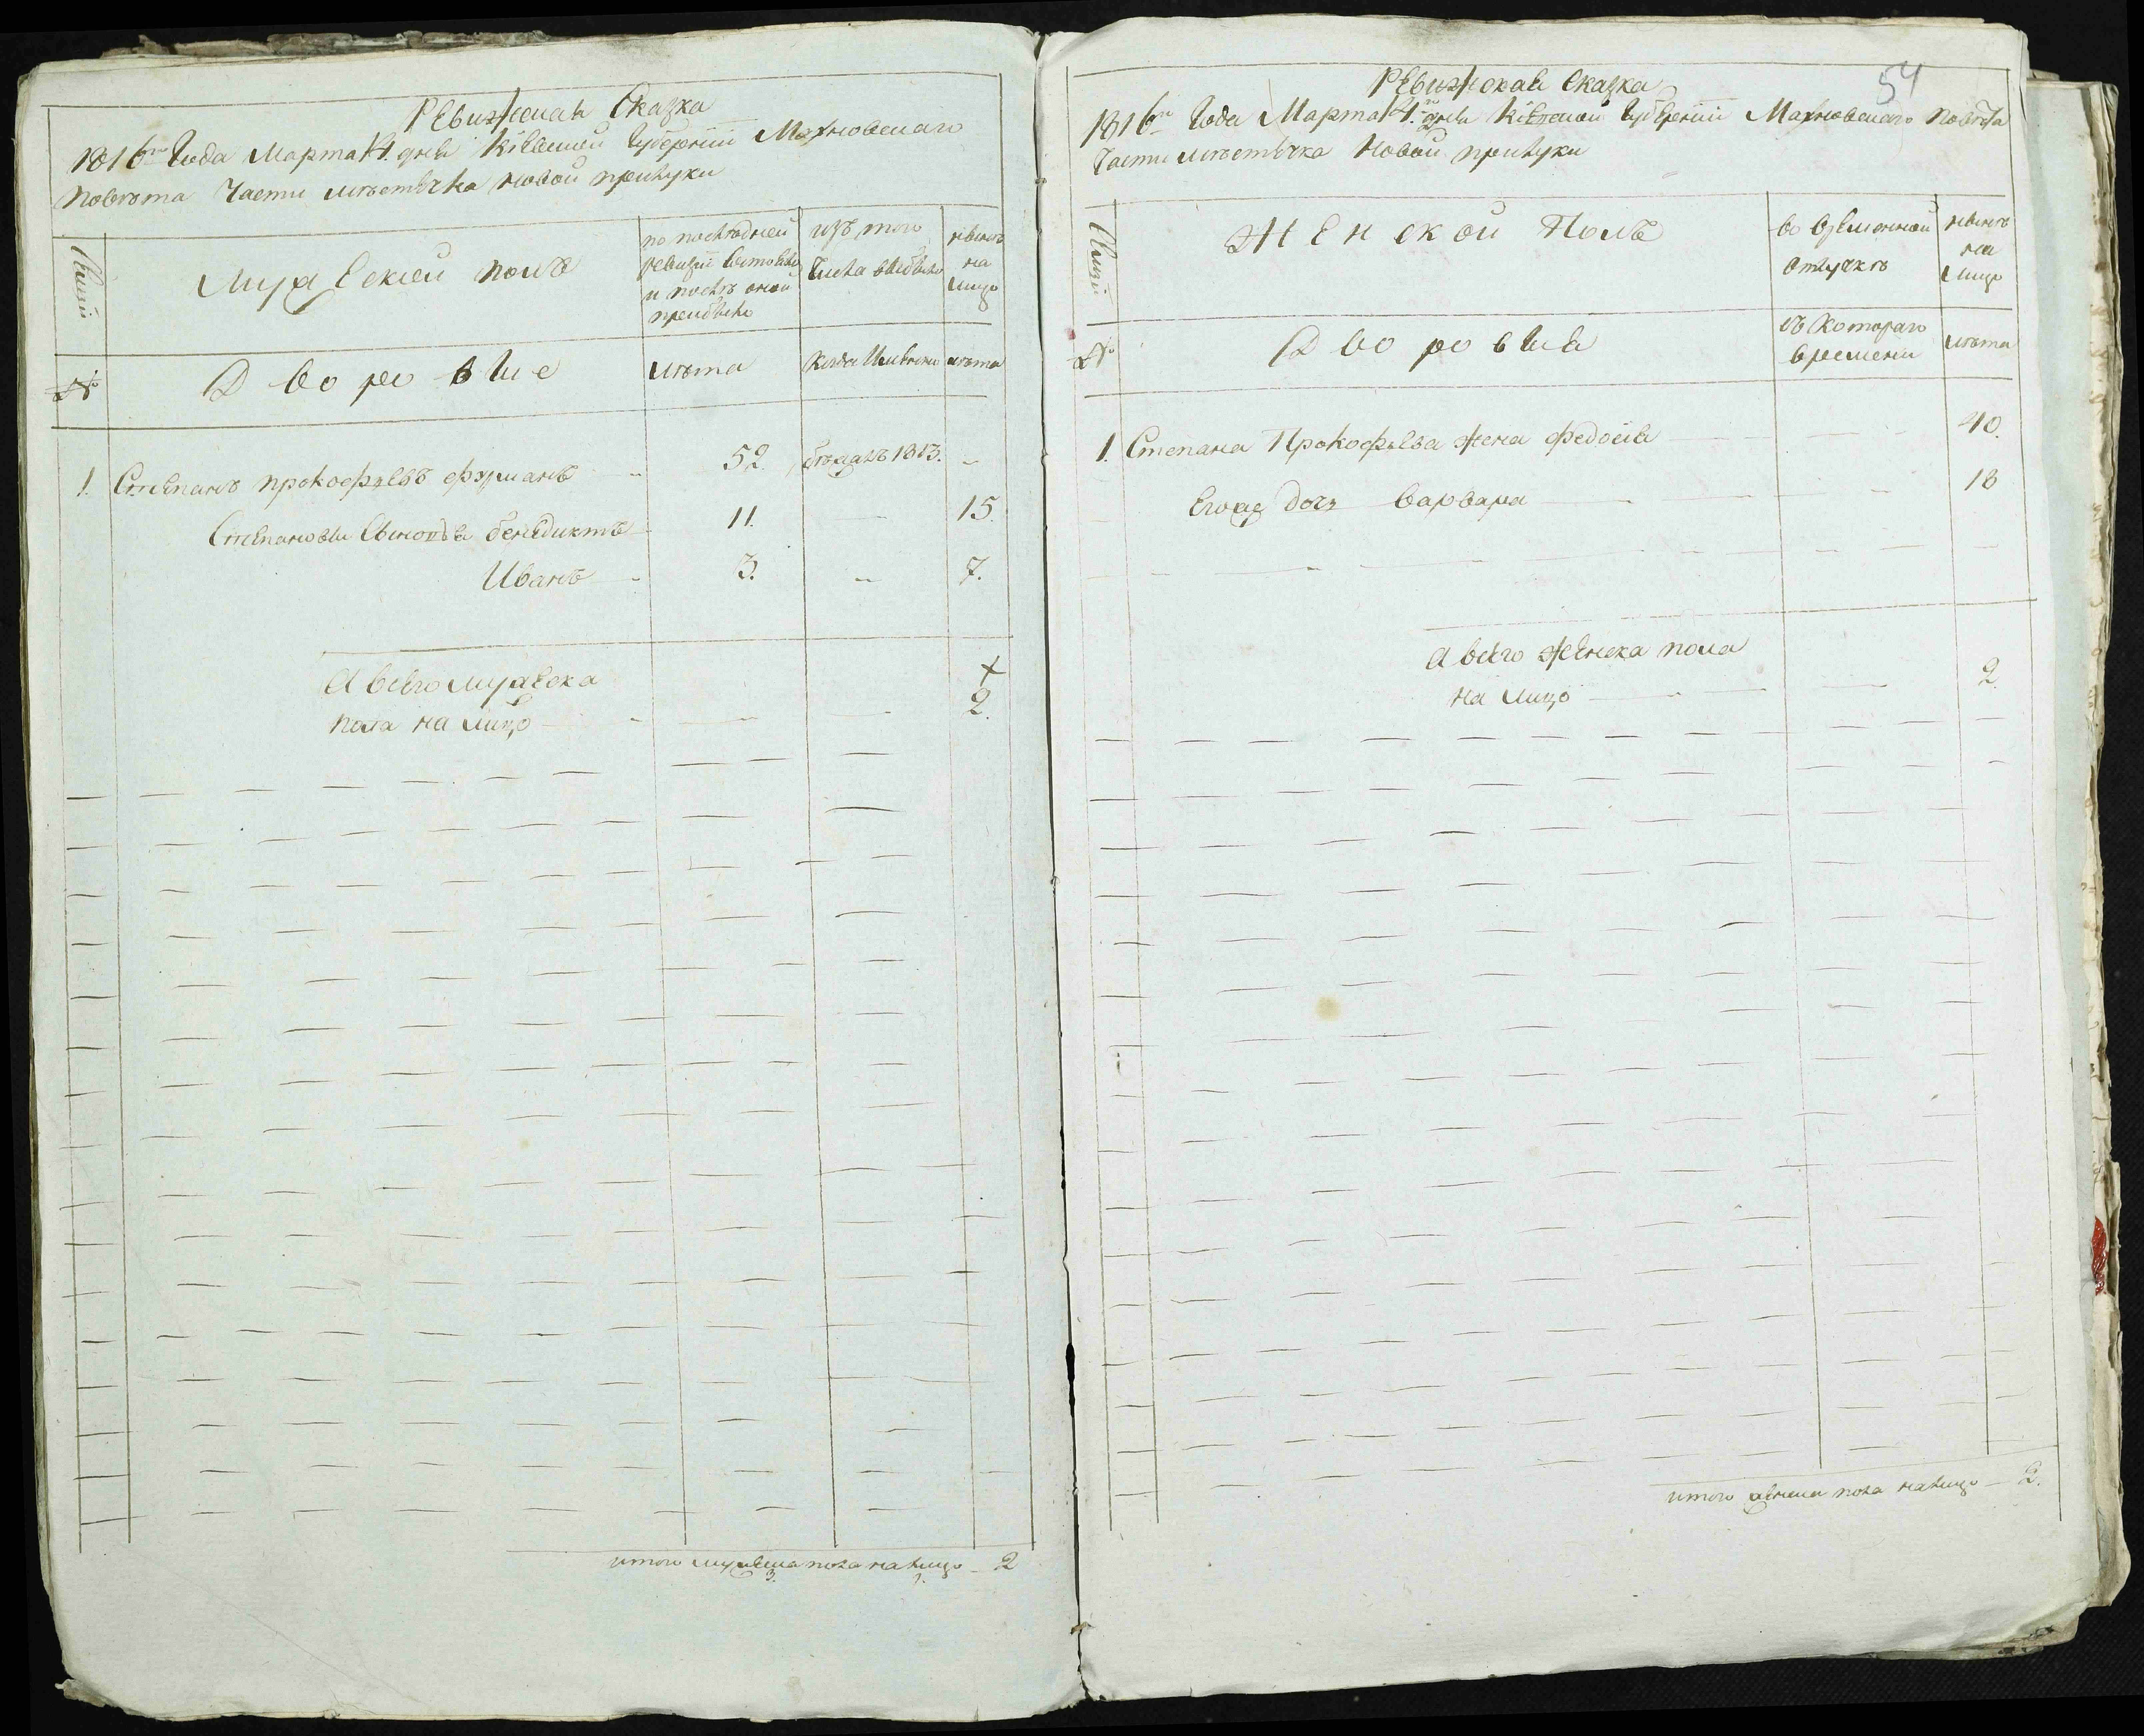 Ревижская Сказка
1816го Года Марта 14. дня Кіевской Губерніи Махновскаго
повѣта Части мѣстечка Новой прилуки
Семьи
Мужескей полъ
по последней ревизіи состояло и послѣ оной прибыло
изъ того числа выбыло
нынѣ на лицо
№
Дворовые
лѣта
когда Имянно
лѣта
1. Степанъ прокофьевъ фурманъ 52. бѣжалъ 1813.
Степановы Сыновья бенедиктъ 11. 15.
Иванъ 3. 7.
А всего мужеска
пола на лицо 2.
итого мужеска пола налицо 2
54
Ревижская Сказка
1816го Года Марта 14го дня Кіевской Губерніи Махновскаго повѣта
Части мѣстечка Новой прилуки
Семьи
Женской Полъ
во временной отлучкѣ
нынѣ на лицо
№
Дворовыя
съ котораго времени
лѣта
1. Степана Прокофьева жена федосія 40.
Егоже дочь варвара 18
А всего женска пола
на лицо 2
итого женска пола налицо 2.